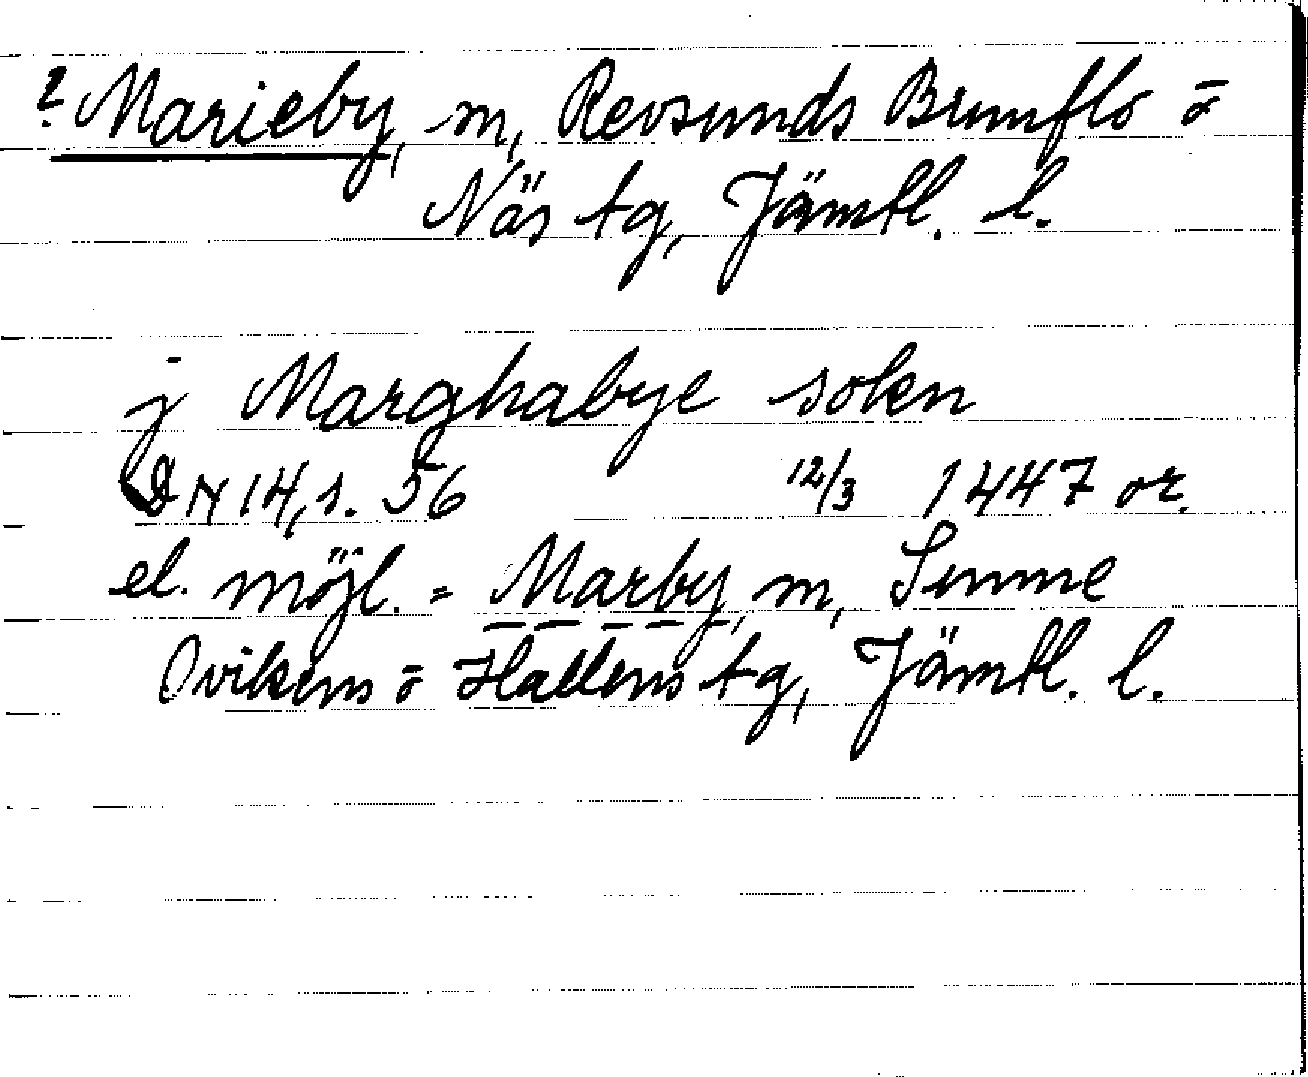 ? Marieby, m, Revsunds Brunflo ō
Näs tg, Jämtl. l.
j Marghabye sokn
DN 14, s. 56 12/3 1447 or.
el. möjl. = Marby, m, Sunne
Ovikens ō Hallens tg, Jämtl. l.